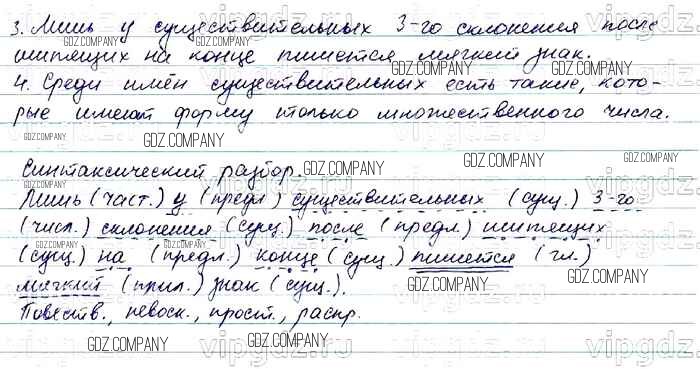 3. Лишь у существительных 3-го склонения после
шипящих на конце пишется мягкий знак.
4. Среди имён существительных есть такие, кото-
рые имеют форму только множественного числа.
Синтаксический разбор.
Лишь (част.) у (предл.) существительных (сущ.) 3-го
(числ.) склонения (сущ.) после (предл.) шипящих
(сущ.) на (предл.) конце (сущ.) пишется (гл.)
мягкий (прил.) знак (сущ.).
Повеств., невоск., прост., распр.
GDZ.COMPANY
vipgdz.ru